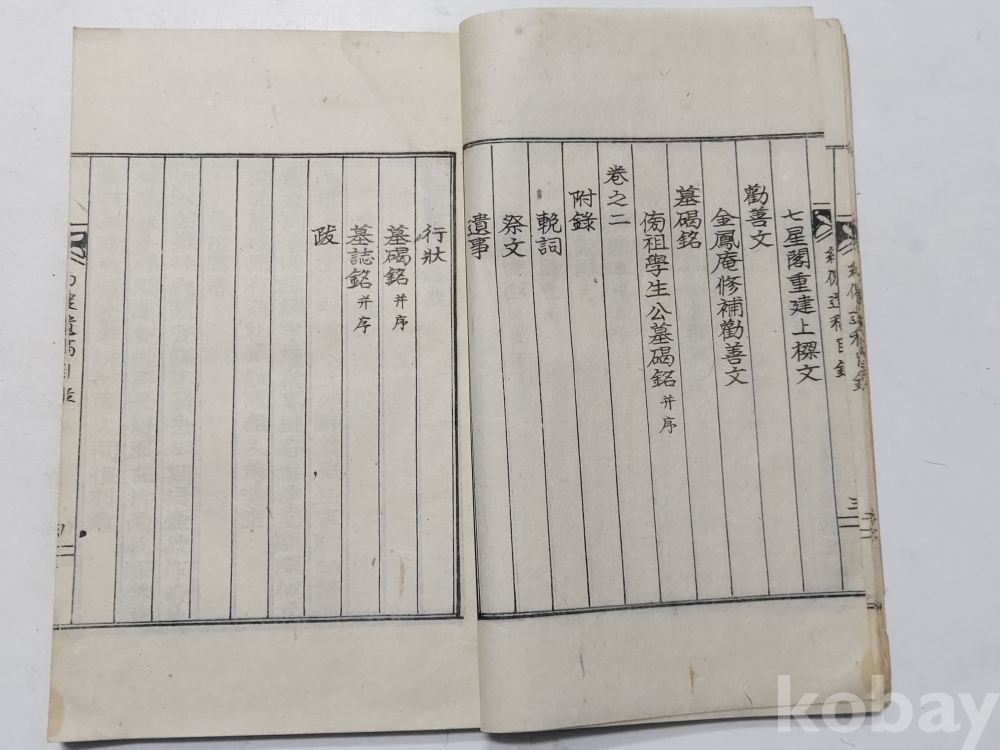 七星閣重建上樑文
勸善文
金鳳庵修補勸善文
墓碣銘
傍祖學生公墓碣銘 并序
卷之二
附錄
輓詞
祭文
遺事
行狀
墓碣銘 并序
墓誌銘 并序
跋
三
kobay